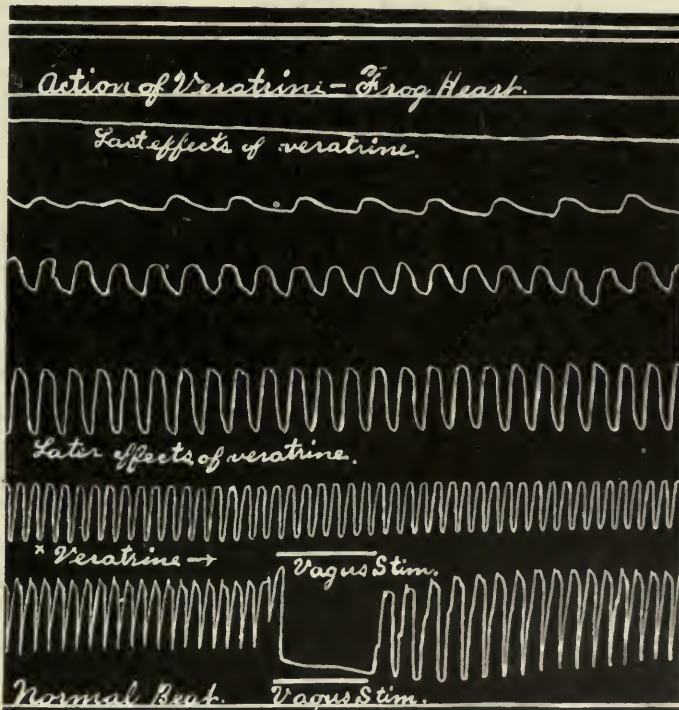 Action of Veratrine - Frog Heart.
Last effects of veratrine.
Later effects of veratrine.
x Veratrine →
Vagus Stim.
Normal Beat. Vagus Stim.